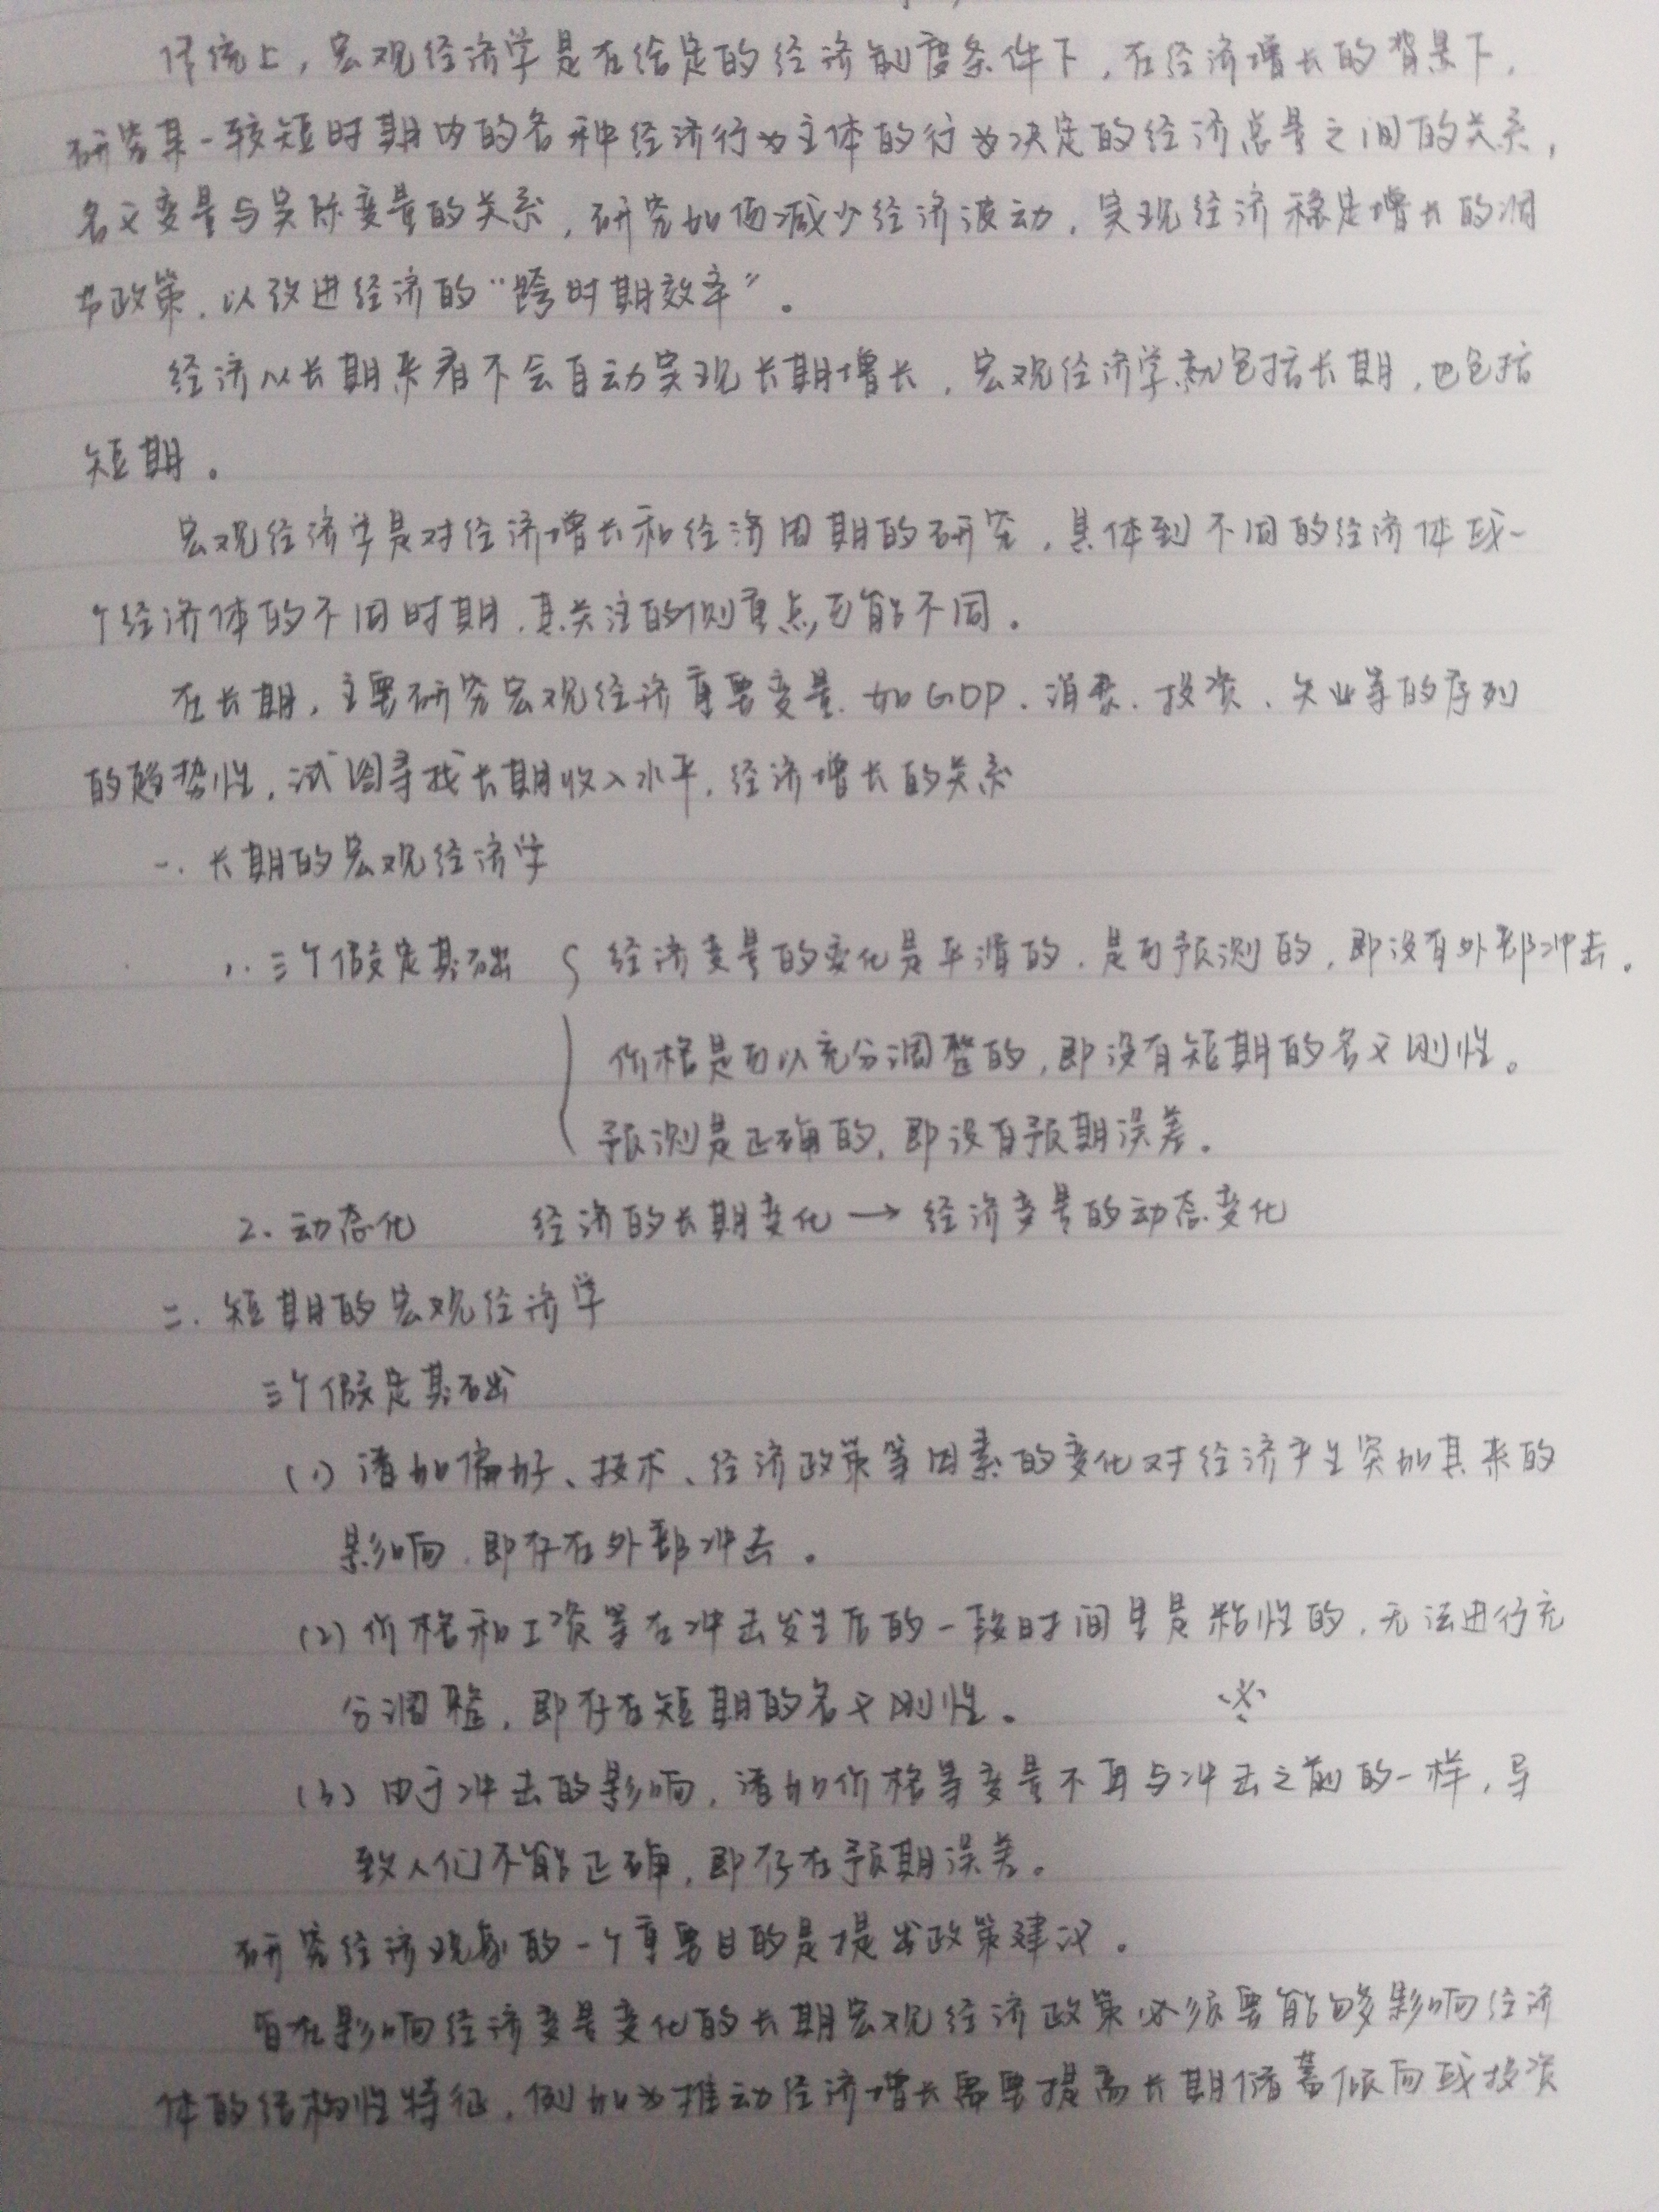 传统上，宏观经济学是在给定的经济制度条件下，在经济增长的背景下，
研究某一较短时期内的各种经济行为主体的行为决定的经济总量之间的关系，
名义变量与实际变量的关系，研究如何减少经济波动，实现经济稳定增长的调
节政策，以改进经济的“跨时期效率”。
经济从长期来看不会自动实现长期增长，宏观经济学就包括长期，也包括
短期。
宏观经济学是对经济增长和经济周期的研究，具体到不同的经济体或一
个经济体的不同时期，其关注的侧重点可能不同。
在长期，主要研究宏观经济重要变量，如GDP、消费、投资、失业等的序列
的趋势性，试图寻找长期收入水平，经济增长的关系
一. 长期的宏观经济学
1. 三个假定基础 { 经济变量的变化是平滑的，是可预测的，即没有外部冲击。
价格是可以充分调整的，即没有短期的名义刚性。
预测是正确的，即没有预期误差。
2. 动态化 经济的长期变化 → 经济变量的动态变化
二. 短期的宏观经济学
三个假定基础
(1) 诸如偏好、技术、经济政策等因素的变化对经济产生突如其来的
影响，即存在外部冲击。
(2) 价格和工资等在冲击发生后的一段时间里是粘性的，无法进行充
分调整，即存在短期的名义刚性。
(3) 由于冲击的影响，诸如价格等变量不再与冲击之前的一样，导
致人们不能正确，即存在预期误差。
研究经济现象的一个重要目的是提出政策建议。
旨在影响经济变量变化的长期宏观经济政策必须要能够影响经济
体的结构性特征，例如为推动经济增长需要提高长期储蓄倾向或投资